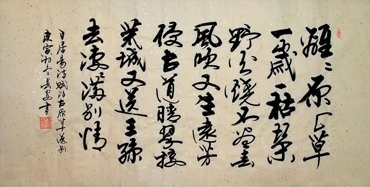 離〻原上草
一歲一枯榮
野火燒不盡春
風吹又生遠芳
侵古道晴翠接
荒城又送王孫
去萋〻滿別情
白居易詩賦得古原草送別
庚寅初冬書